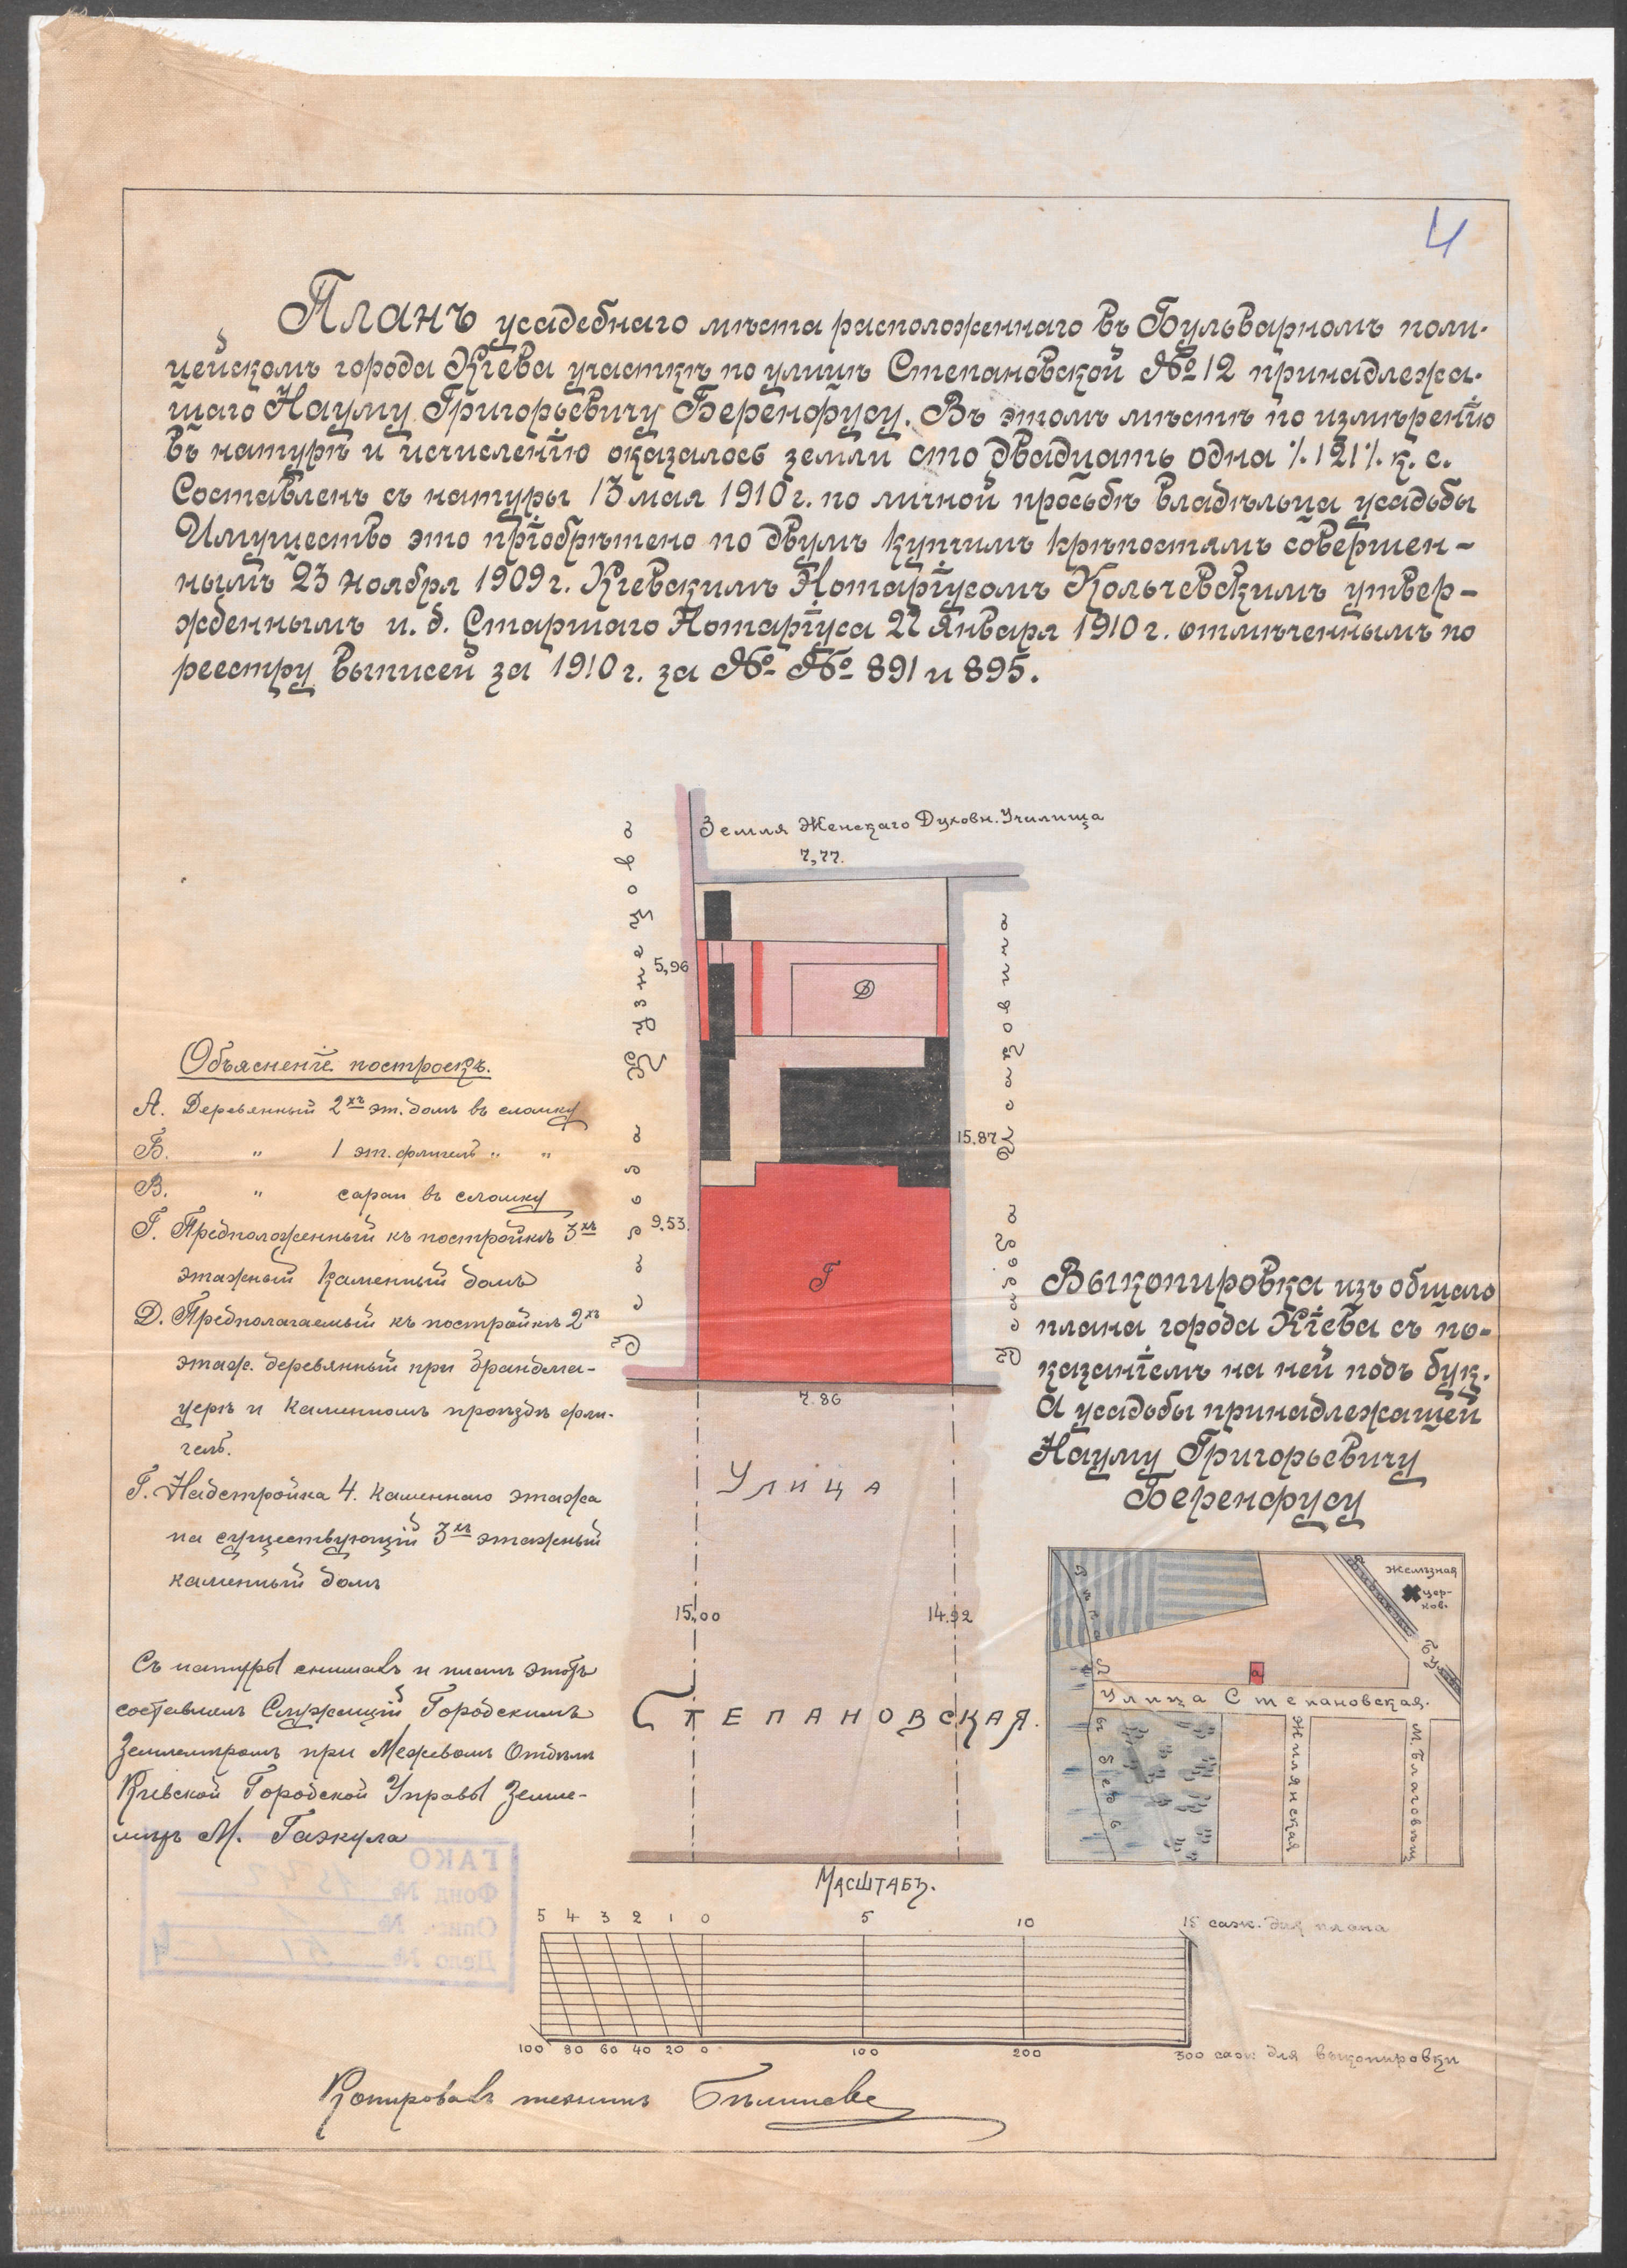 4
Планъ усадебнаго мѣста расположеннаго въ Бульварномъ поли-
цейскомъ города Кіева участкѣ по улицѣ Степановской №12 принадлежа-
щаго Науму Григорьевичу Беренфусу. Въ этомъ мѣстѣ по измѣренію
въ натурѣ и исчисленію оказалось земли сто двадцать одна %121% к. с.
Составленъ съ натуры 13 мая 1910 г. по личной просьбѣ владѣльца усадьбы
Имущество это пріобрѣтено по двумъ купчимъ крѣпостямъ совершен-
нымъ 23 ноября 1909 г. Кіевскимъ Нотаріусомъ Кольчевскимъ утвер-
жденнымъ и. д. Старшаго Нотаріуса 27 Января 1910 г. отмѣченнымъ по
реестру выписей за 1910 г. за № № 891 и 895.
Земля Женскаго Духовн. Училища
7,77.
Усадьба Кузнецова
5,96
Д
Усадьба
15.87
9.53.
Г
7.86
Объясненіе построекъ.
А. Деревянный 2хъ эт. домъ въ сломку
Б. " 1 эт. флигель " "
В. " сараи въ сломку
Г. Предположенный къ постройкѣ 3хъ
этажный каменный домъ
Д. Предполагаемый къ постройкѣ 2хъ
этаж. деревянный при брандма-
уерѣ и каменномъ проѣздѣ фли-
гель.
Г. Надстройка 4. каменнаго этажа
на существующій 3хъ этажный
каменный домъ
Съ натуры снималъ и планъ этотъ
составилъ Служащій Городскимъ
Землемѣромъ при Межевомъ Отдѣлѣ
Кіевской Городской Управы Земле-
мѣръ М.
Улица
15,00
14.92
Степановская.
Выкопировка изъ общаго
плана города Кіева съ по-
казаніемъ на ней подъ бук.
а усадьбы принадлежащей
Науму Григорьевичу
Беренфусу
Желѣзная
цер-
ков.
Бибик.
Бульв.
а
Улица Степановская.
Рѣка Лыбедь
Жилянская
М. Благовѣщ
ГАКО
Фонд №
Опис. № 1
Дело №
Масштабъ.
5 4 3 2 1 0 5 10 15 саж. для плана
100 80 60 40 20 0 100 200 300 саж для выкопировки
Копировалъ техникъ